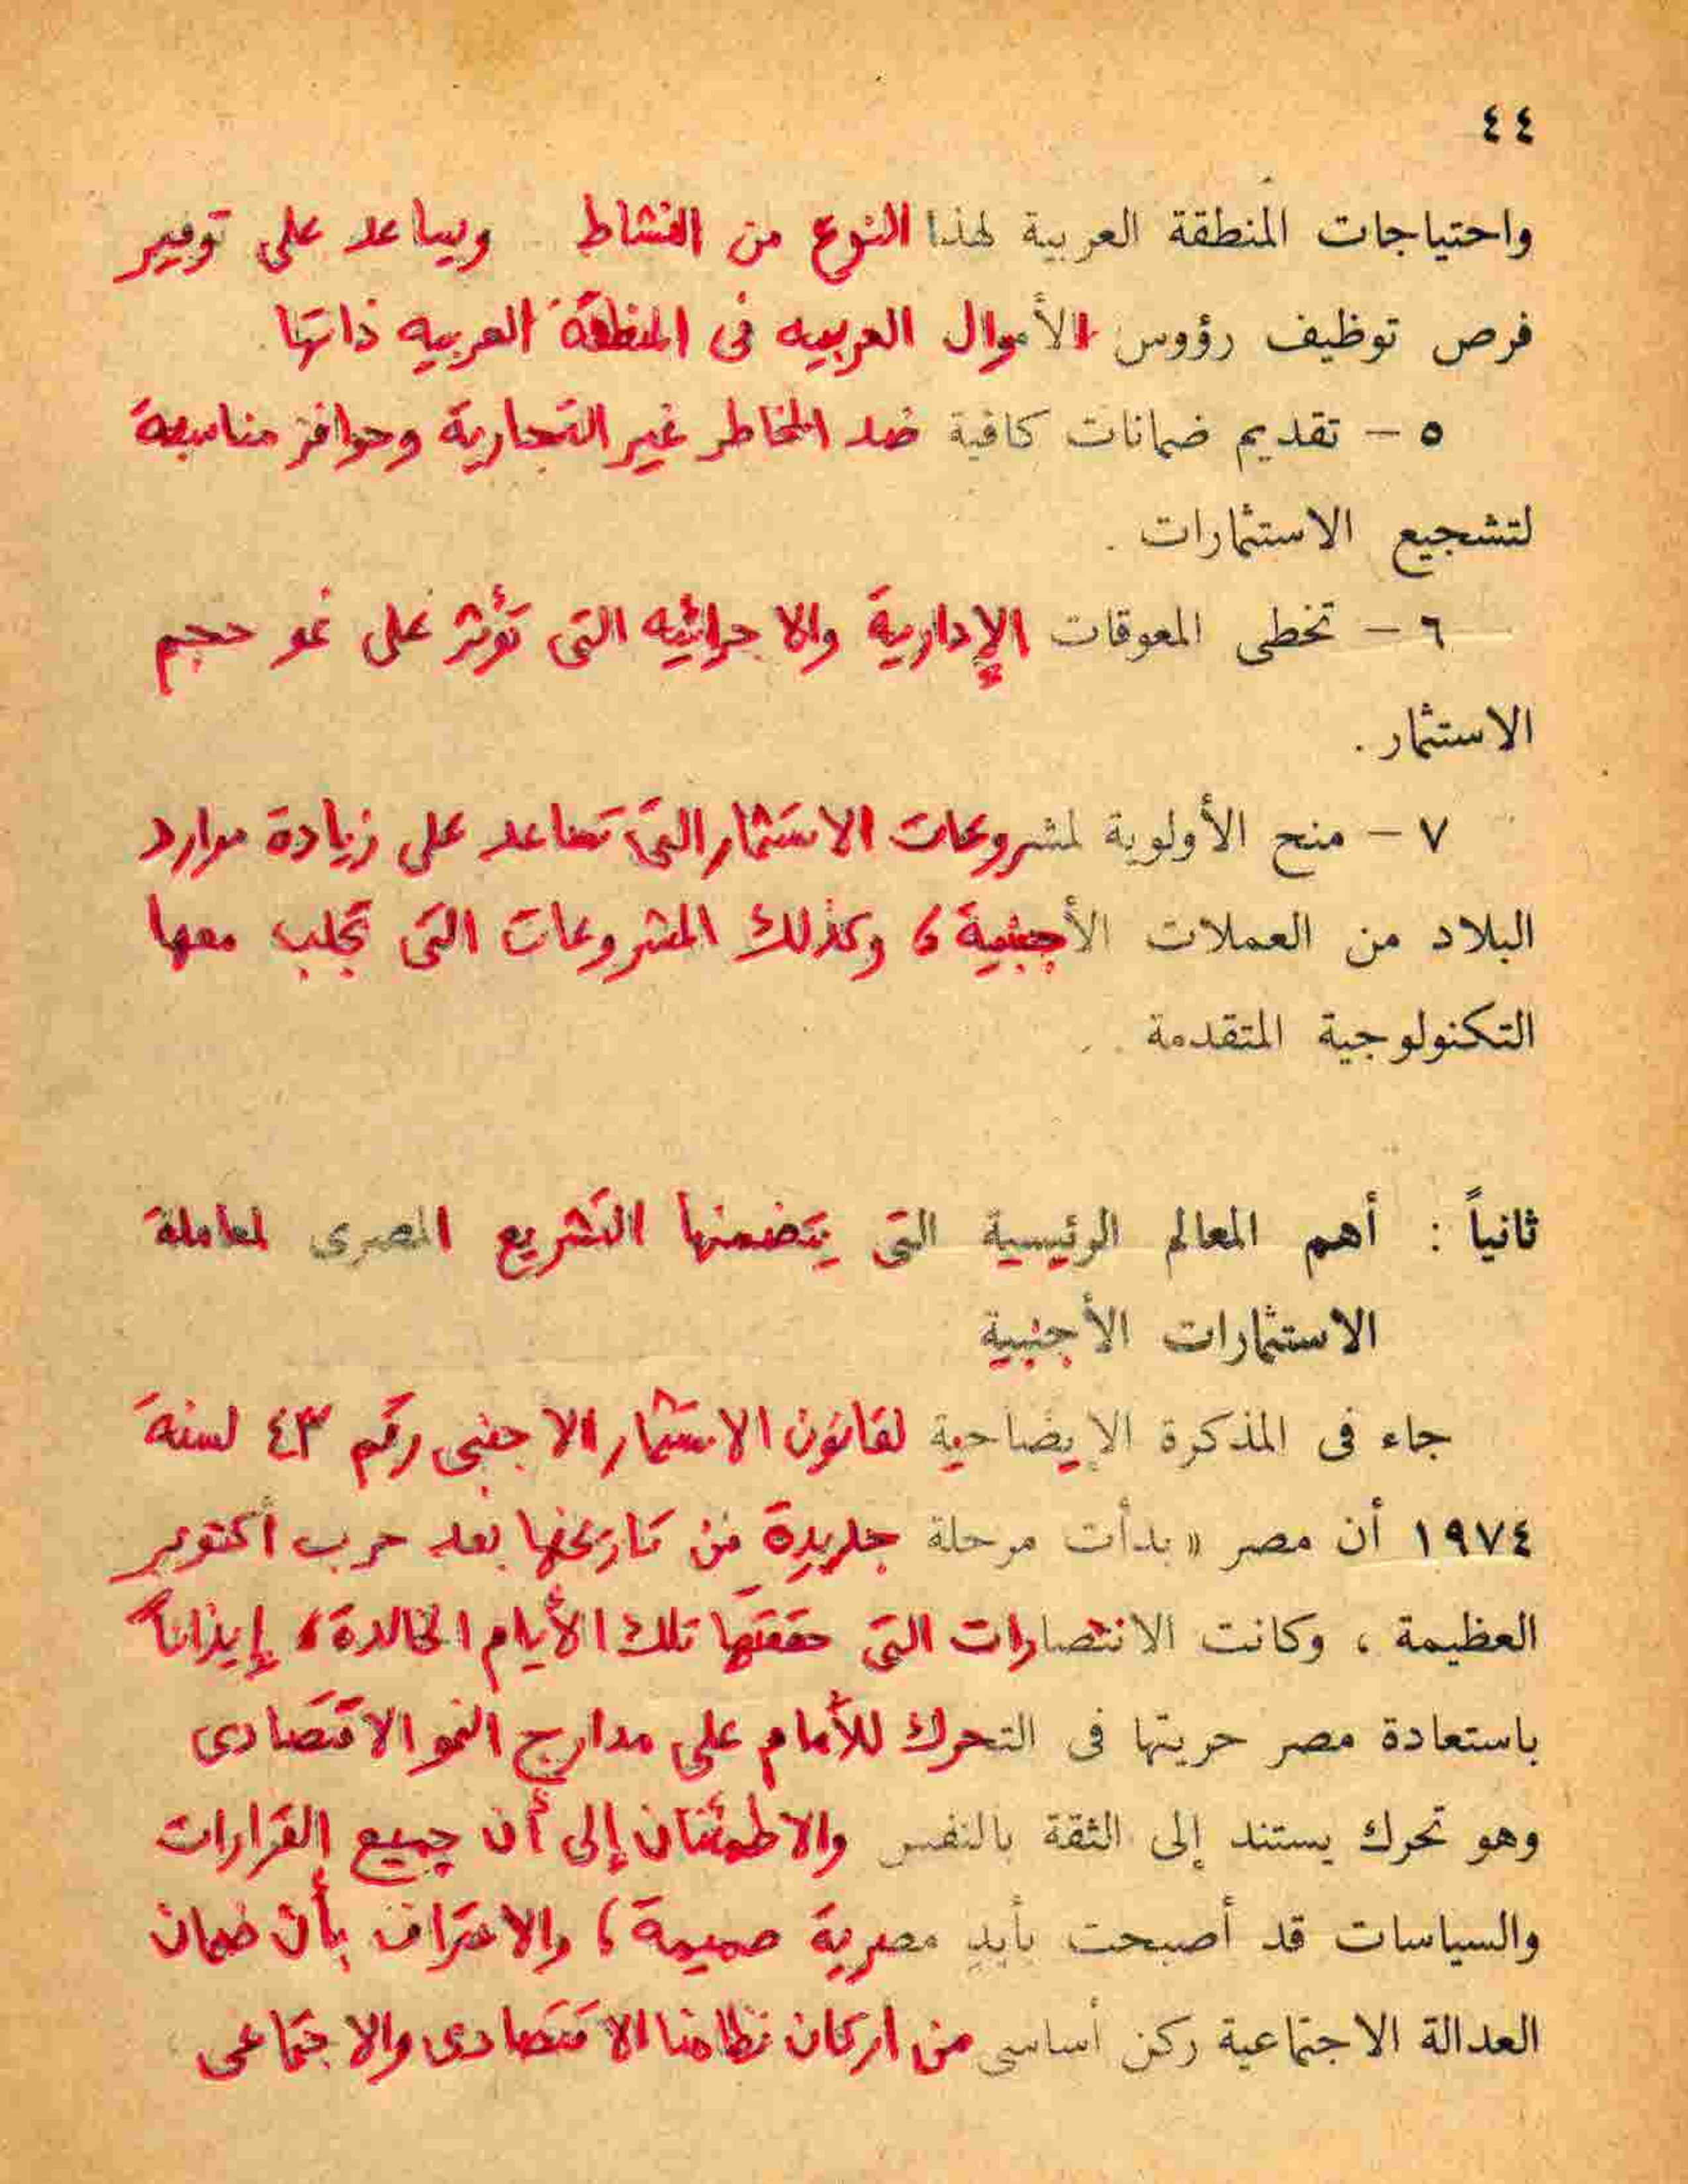 ٤٤
واحتياجات المنطقة العربية لهذا النوع من النشاط ويساعد على توفير
فرص توظيف رؤوس الأموال العربيه فى المنطقة العربيه ذاتها
٥ – تقديم ضمانات كافية ضد المخاطر غير التجارية وحوافز مناسبة
لتشجيع الاستثمارات .
٦ – تخطى المعوقات الإدارية والاجرائيه التى تؤثر على نمو حجم
الاستثمار .
٧ – منح الأولوية لمشروعات الاستثمار التى تساعد على زيادة موارد
البلاد من العملات الأجنبية ، وكذلك المشروعات التى تجلب معها
التكنولوجية المتقدمة .
ثانياً : أهم المعالم الرئيسية التى يتضمنها التشريع المصرى لمعاملة
الاستثمارات الأجنبية
جاء فى المذكرة الإيضاحية لقانون الاستثمار الاجنبى رقم ٤٣ لسنة
١٩٧٤ أن مصر « بدأت مرحلة جديدة من تاريخها بعد حرب أكتوبر
العظيمة ، وكانت الانتصارات التى حققتها تلك الأيام الخالدة ، إيذاناً
باستعادة مصر حريتها فى التحرك للأمام على مدارج النمو الاقتصادى
وهو تحرك يستند إلى الثقة بالنفس والاطمئنان إلى أن جميع القرارات
والسياسات قد أصبحت بأيد مصرية صميمة ، والاعتراف بأن ضمان
العدالة الاجتماعية ركن أساسى من اركان نظامنا الاقتصادى والاجتماعى